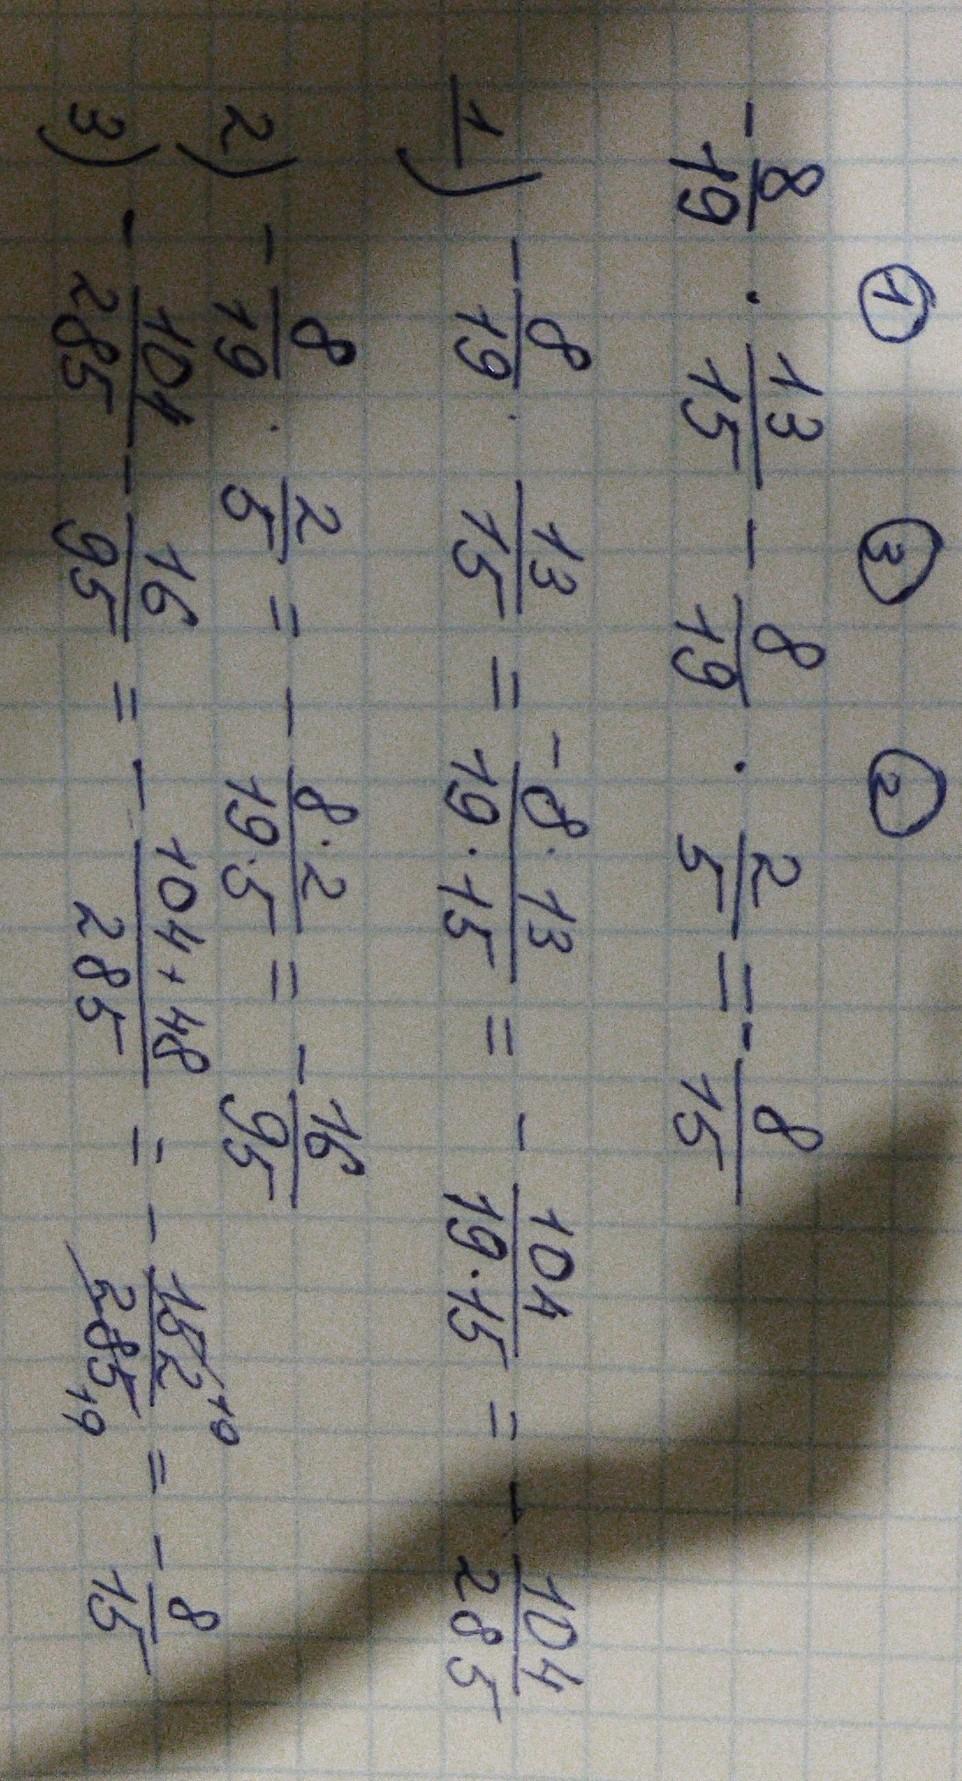 ① ③ ②
-8/19 · 13/15 - 8/19 · 2/5 = -8/15
1) -8/19 · 13/15 = -8·13/19·15 = -104/19·15 = -104/285
2) -8/19 · 2/5 = -8·2/19·5 = -16/95
3) -104/285 - 16/95 = -104+48/285 = -152 19/285 19 = -8/15